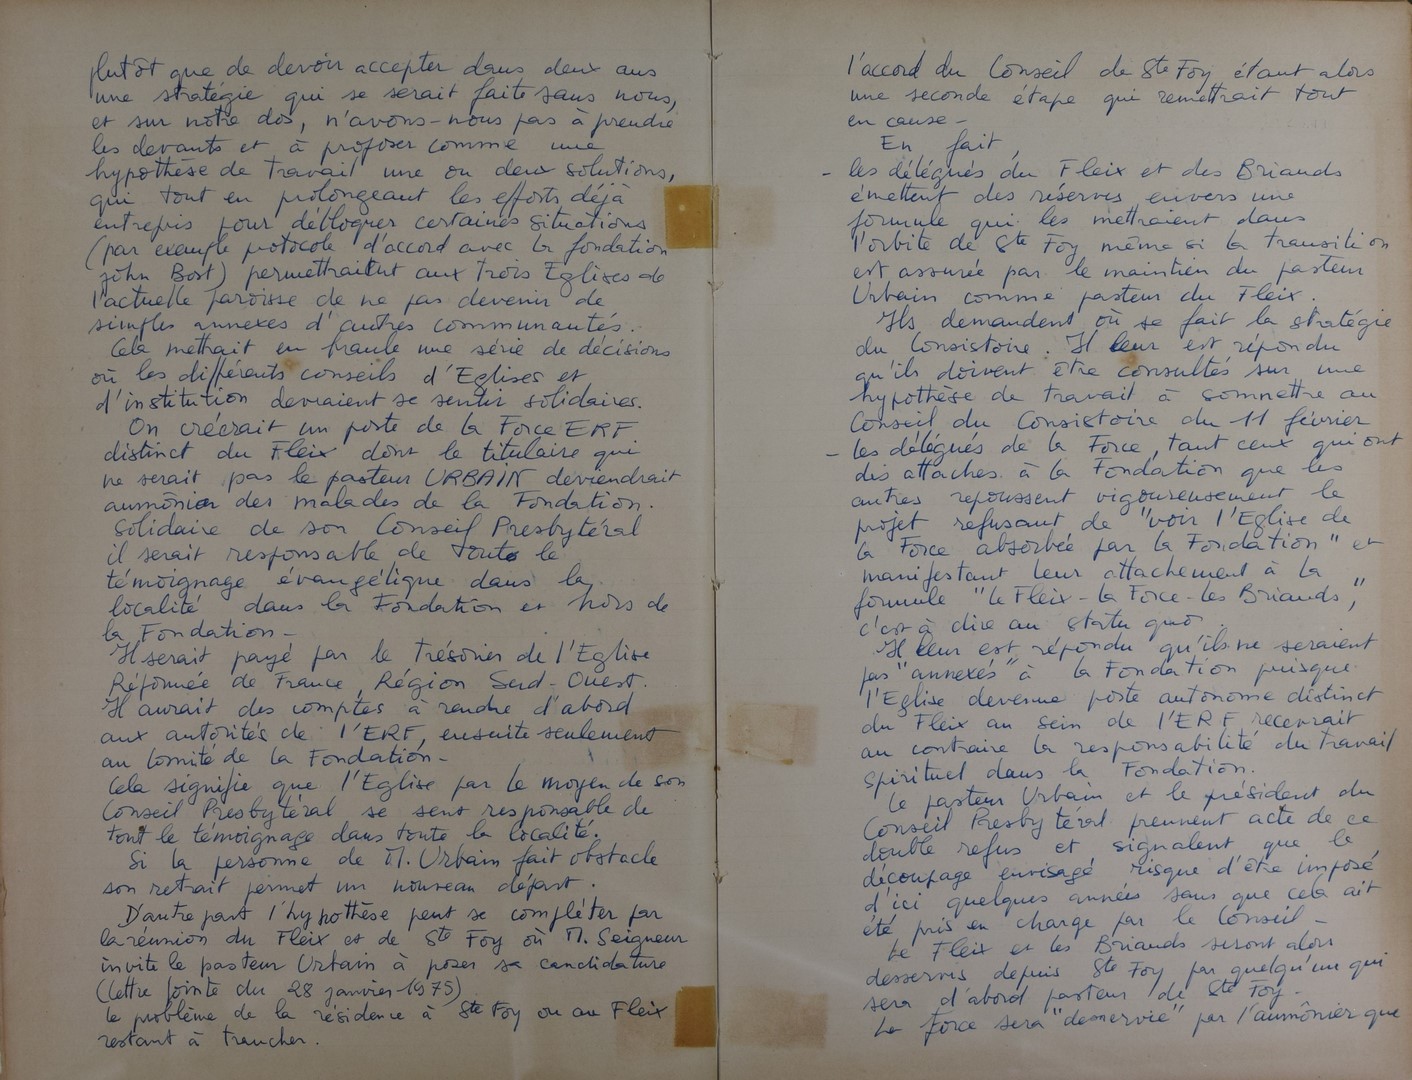 plutôt que de devoir accepter dans deux ans
une stratégie qui se serait faite sans nous,
et sur notre dos, n'avons-nous pas à prendre
les devants et à proposer comme une
hypothèse de travail une ou deux solutions,
qui tout en prolongeant les efforts déjà
entrepis pour débloquer certaines situations
(par exemple protocole d'accord avec la fondation
john Bost) permettraient aux trois Eglises de
l'actuelle paroisse de ne pas devenir de
simples annexes d'autres communautés.
Cela mettrait en branle une série de décisions
où les différents conseils d'Eglises et
d'institution devraient se sentir solidaires.
On créerait un poste de la Force ERF
distinct du Fleix dont le titulaire qui
ne serait pas le pasteur URBAIN deviendrait
aumônier des malades de la Fondation.
Solidaire de son Conseil Presbytéral
il serait responsable de toute le
témoignage évangélique dans la
localité dans la Fondation et hors de
la Fondation -
Il serait payé par le Trésorier de l'Eglise
Réformée de France, Région Sud-Ouest.
Il aurait des comptes à rendre d'abord
aux autorités de l'ERF, ensuite seulement
au Comité de la Fondation -
Cela signifie que l'Eglise par le moyen de son
Conseil Presbytéral se sent responsable de
tout le témoignage dans toute la localité.
Si la personne de M. Urbain fait obstacle
son retrait permet un nouveau départ.
D'autre part l'hypothèse peut se compléter par
la réunion du Fleix et de Ste Foy où M. Seigneur
invite le pasteur Urbain à poser sa candidature
(lettre jointe du 28 janvier 1975)
le problème de la résidence à Ste Foy ou au Fleix
restant à trancher.
l'accord du Conseil de Ste Foy étant alors
une seconde étape qui remettrait tout
en cause -
En fait,
- les délégués du Fleix et des Briands
émettent des réserves envers une
formule qui les mettraient dans
l'orbite de Ste Foy même si la transition
est assurée par le maintien du pasteur
Urbain comme pasteur du Fleix.
Ils demandent où se fait la stratégie
du Consistoire. Il leur est répondu
qu'ils doivent être consultés sur une
hypothèse de travail à soumettre au
Conseil du Consistoire du 11 février
- les délégués de la Force, tant ceux qui ont
des attaches à la Fondation que les
autres repoussent vigoureusement le
projet refusant de "voir l'Eglise de
la Force absorbée par la Fondation" et
manifestant leur attachement à la
formule "Le Fleix - la Force - les Briands",
c'est à dire au statu quo.
Il leur est répondu qu'ils ne seraient
pas "annexés" à la Fondation puisque
l'Eglise devenue poste autonome distinct
du Fleix au sein de l'ERF recevrait
au contraire la responsabilité du travail
spirituel dans la Fondation.
Le pasteur Urbain et le président du
Conseil Presbytéral prennent acte de ce
double refus et signalent que le
découpage envisagé risque d'être imposé
d'ici quelques années sans que cela ait
été pris en charge par le Conseil -
Le Fleix et les Briands seront alors
desservis depuis Ste Foy par quelqu'un qui
sera d'abord pasteur de Ste Foy -
La Force sera "desservie" par l'aumônier que